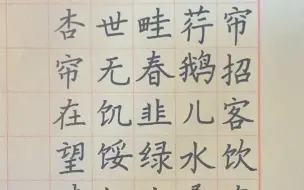 帘招客饮
荇鹅儿水
畦春韭绿
世无饥馁
杏帘在望